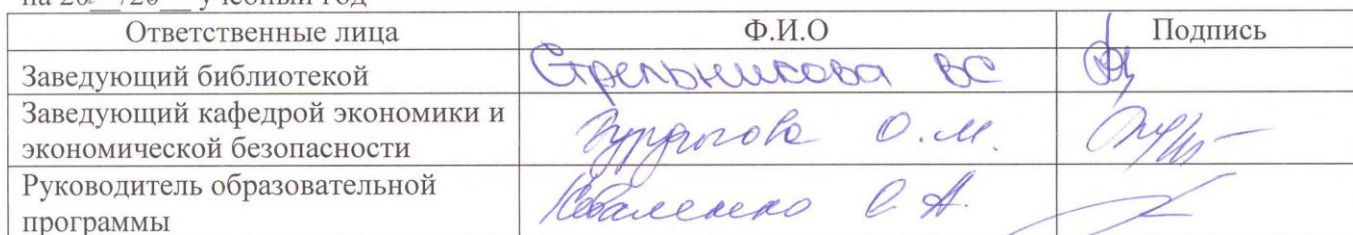 учебный год
Ответственные лица Ф.И.О Подпись
Заведующий библиотекой Стрельникова ВС
Заведующий кафедрой экономики и
экономической безопасности О.М.
Руководитель образовательной
программы Коваленко С А.